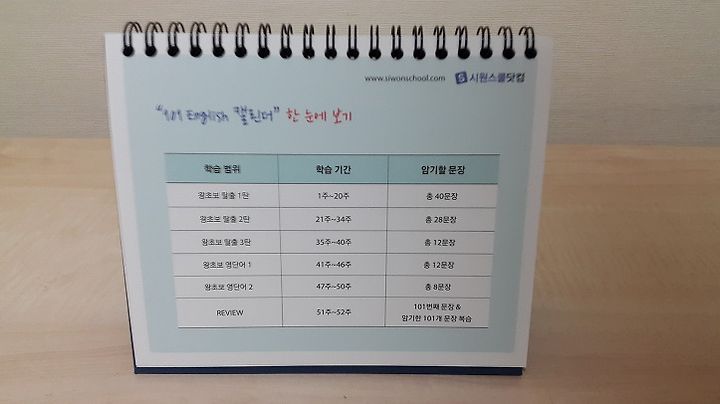 www.siwonschool.com S 시원스쿨닷컴
"101 English 캘린더" 한 눈에 보기
학습 범위 학습 기간 암기할 문장
왕초보 탈출 1탄 1주~20주 총 40문장
왕초보 탈출 2탄 21주~34주 총 28문장
왕초보 탈출 3탄 35주~40주 총 12문장
왕초보 영단어 1 41주~46주 총 12문장
왕초보 영단어 2 47주~50주 총 8문장
REVIEW 51주~52주 101번째 문장 &
암기한 101개 문장 복습